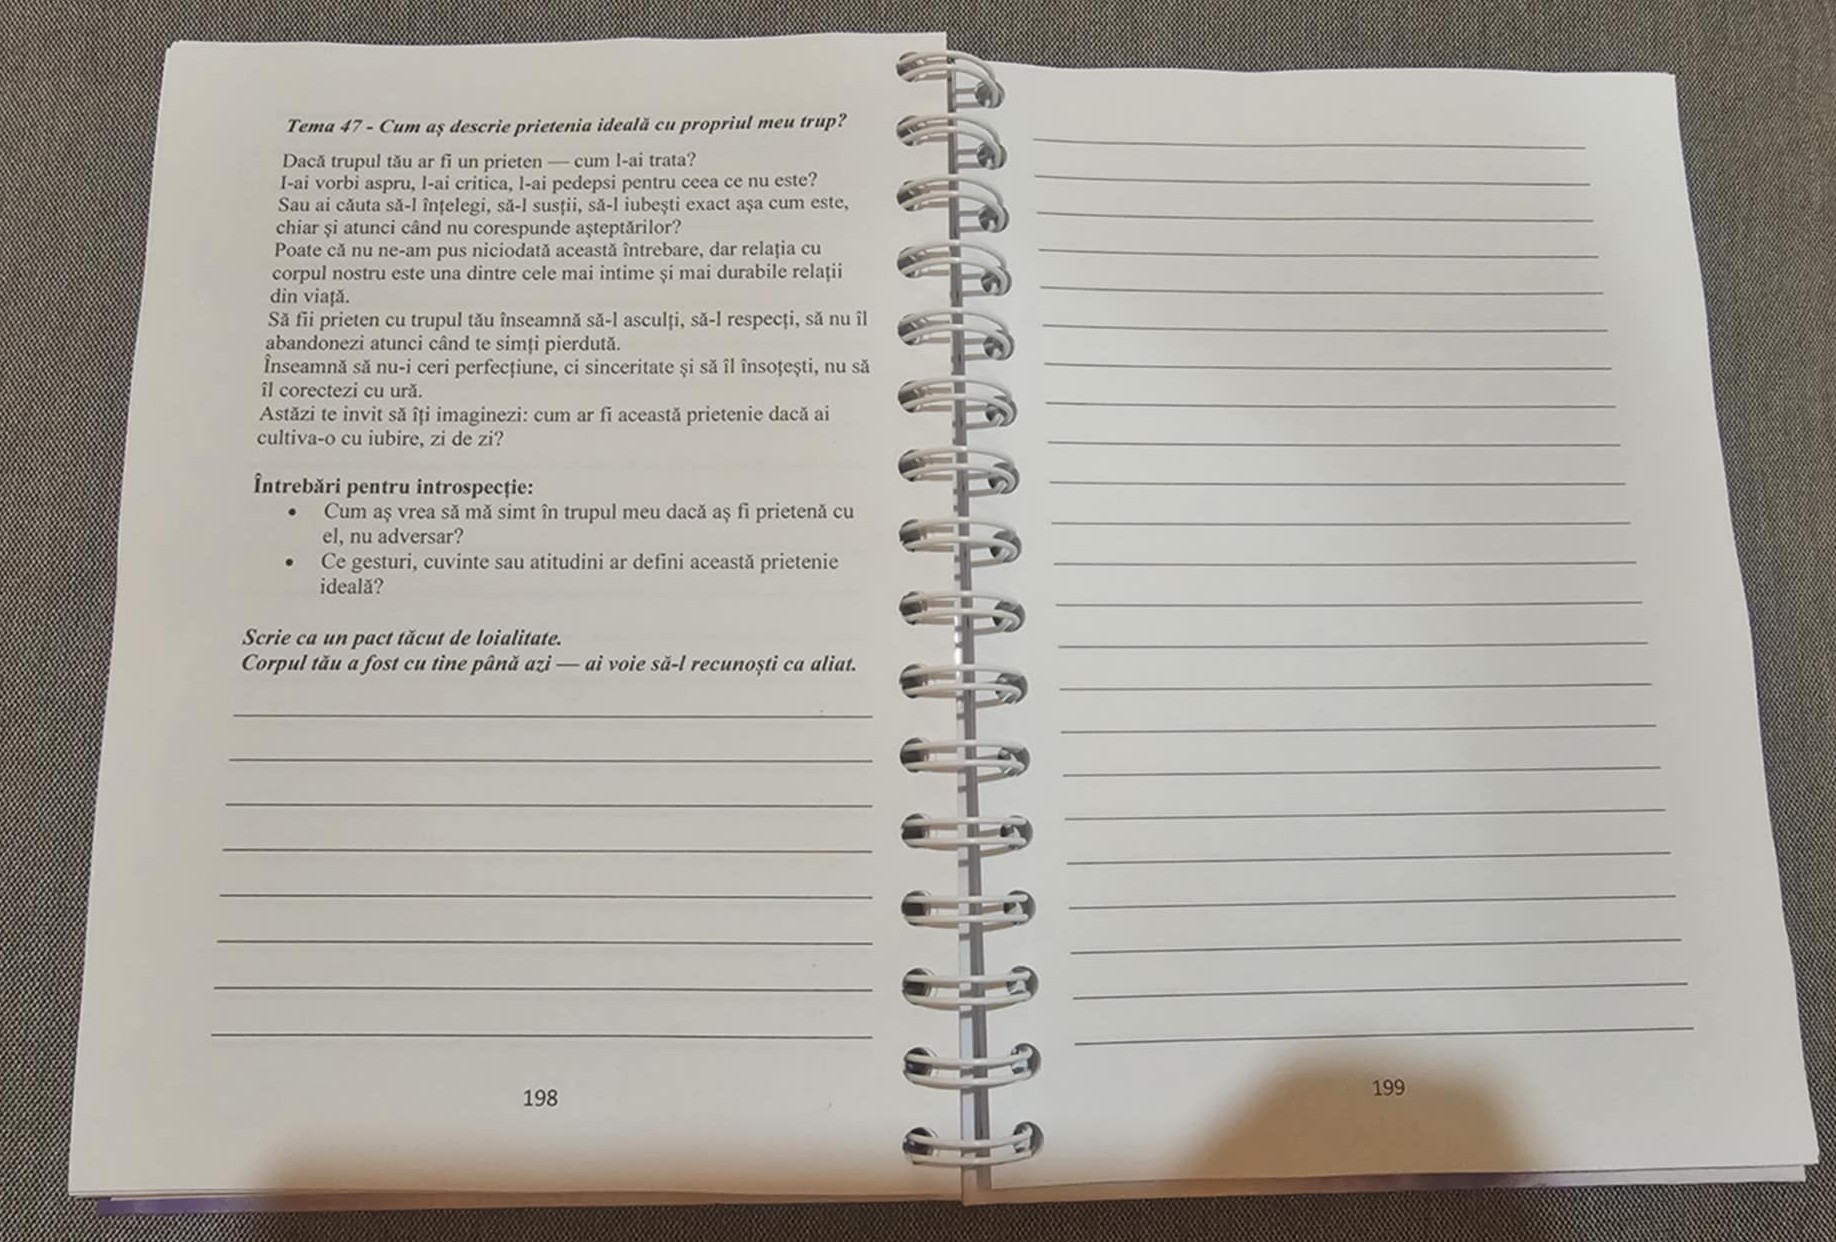 Tema 47 - Cum aș descrie prietenia ideală cu propriul meu trup?
Dacă trupul tău ar fi un prieten — cum l-ai trata?
I-ai vorbi aspru, l-ai critica, l-ai pedepsi pentru ceea ce nu este?
Sau ai căuta să-l înțelegi, să-l susții, să-l iubești exact așa cum este,
chiar și atunci când nu corespunde așteptărilor?
Poate că nu ne-am pus niciodată această întrebare, dar relația cu
corpul nostru este una dintre cele mai intime și mai durabile relații
din viață.
Să fii prieten cu trupul tău înseamnă să-l asculți, să-l respecți, să nu îl
abandonezi atunci când te simți pierdută.
Înseamnă să nu-i ceri perfecțiune, ci sinceritate și să îl însoțești, nu să
îl corectezi cu ură.
Astăzi te invit să îți imaginezi: cum ar fi această prietenie dacă ai
cultiva-o cu iubire, zi de zi?
Întrebări pentru introspecție:
• Cum aș vrea să mă simt în trupul meu dacă aș fi prietenă cu
el, nu adversar?
• Ce gesturi, cuvinte sau atitudini ar defini această prietenie
ideală?
Scrie ca un pact tăcut de loialitate.
Corpul tău a fost cu tine până azi — ai voie să-l recunoști ca aliat.
198
199